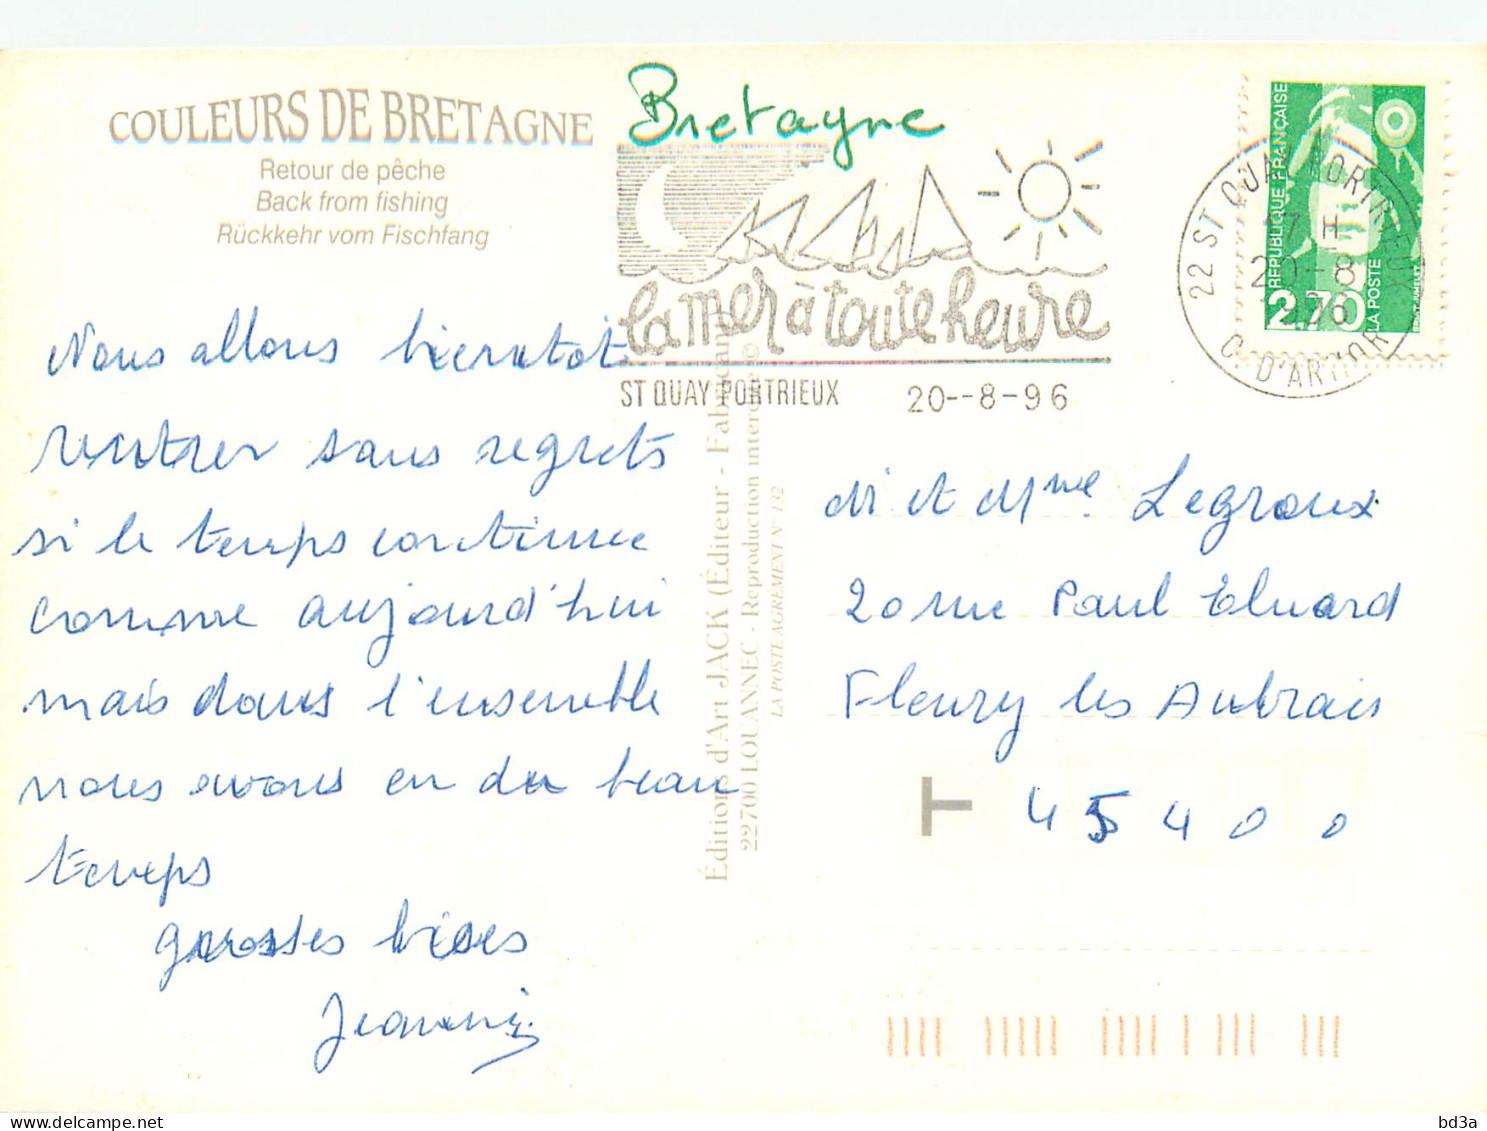 COULEURS DE BRETAGNE
Retour de pêche
Back from fishing
Rückkehr vom Fischfang
Bretagne
la mer à toute heure
ST QUAY PORTRIEUX 20--8-96
22 ST QUAY PORTRIEUX
17 H
20-8
C. D'ARMOR
RÉPUBLIQUE FRANÇAISE
2,70
LA POSTE
Nous allons bientôt
rentrer sans regrets
si le temps continue
comme aujourd'hui
mais dans l'ensemble
nous avons eu du beau
temps
grosses bises
Éditions d'Art JACK (Éditeur - Fabricant)
22700 LOUANNEC - Reproduction interdite ©
LA POSTE AGREMENT N° 132
M et Mme Legroux
20 rue Paul Eluard
Fleury les Aubrais
45400
bd3a